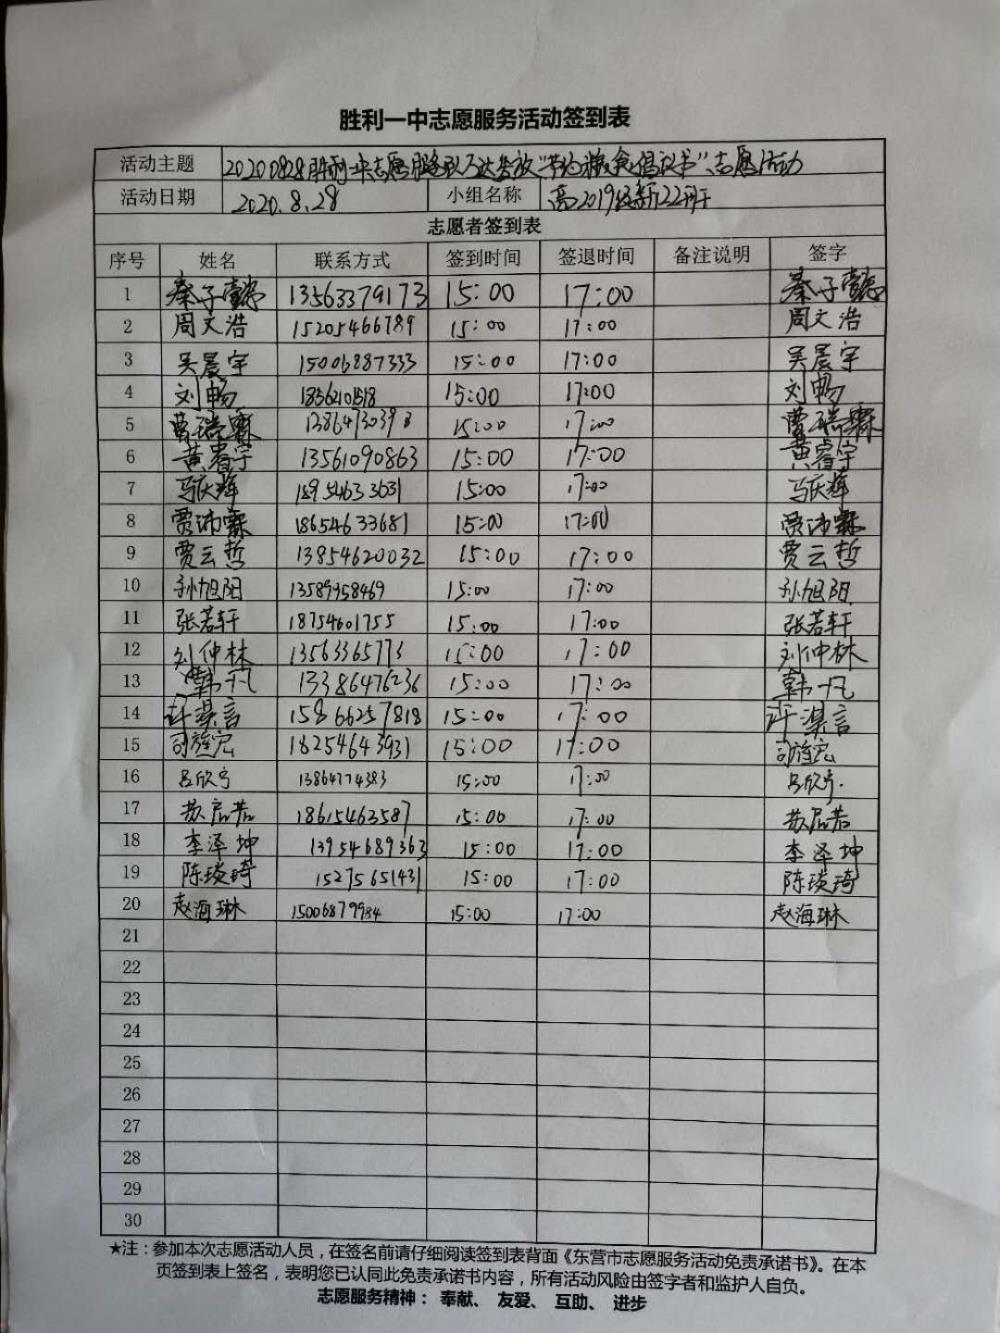 胜利一中志愿服务活动签到表
活动主题 20200828胜利一中志愿服务队万达发放“节约粮食倡议书”志愿活动
活动日期 2020.8.28 小组名称 高2019级新22班
志愿者签到表
序号 姓名 联系方式 签到时间 签退时间 备注说明 签字
1 秦子懿 13563379173 15:00 17:00 秦子懿
2 周文浩 15205466789 15:00 17:00 周文浩
3 吴晨宇 15006887333 15:00 17:00 吴晨宇
4 刘畅 15:00 17:00 刘畅
5 贾瑞霖 15:00 17:00 贾瑞霖
6 黄睿宇 13561090863 15:00 17:00 黄睿宇
7 马庆辉 18954633631 15:00 17:00 马庆辉
8 贾沛霖 18654633681 15:00 17:00 贾沛霖
9 贾云哲 13854620032 15:00 17:00 贾云哲
10 孙旭阳 13589958469 15:00 17:00 孙旭阳
11 张若轩 18754601755 15:00 17:00 张若轩
12 刘仲林 13563365773 15:00 17:00 刘仲林
13 韩一凡 13386476236 15:00 17:00 韩一凡
14 许渠言 15866257818 15:00 17:00 许渠言
15 司旌宏 18254643931 15:00 17:00 司旌宏
16 吕欣宁 13864774383 15:00 17:00 吕欣宁
17 苏启若 18615463587 15:00 17:00 苏启若
18 李泽坤 13954689363 15:00 17:00 李泽坤
19 陈琰琦 15275651431 15:00 17:00 陈琰琦
20 赵海琳 15006879984 15:00 17:00 赵海琳
21
22
23
24
25
26
27
28
29
30
★注：参加本次志愿活动人员，在签名前请仔细阅读签到表背面《东营市志愿服务活动免责承诺书》。在本
页签到表上签名，表明您已认同此免责承诺书内容，所有活动风险由签字者和监护人自负。
志愿服务精神： 奉献、 友爱、 互助、 进步